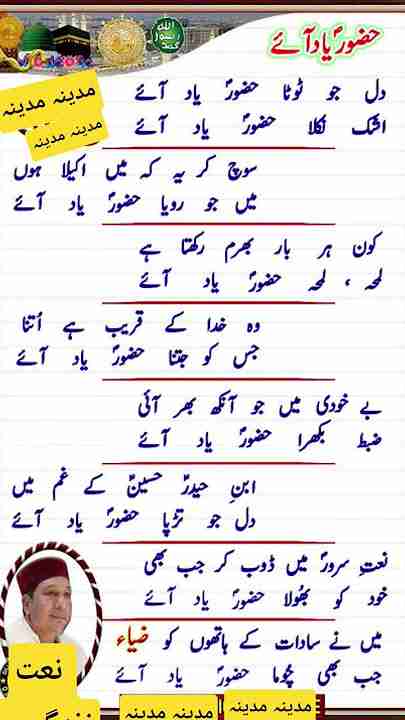 حضورؐ یاد آئے
اللہ
رسول
محمد
مدینہ مدینہ
مدینہ مدینہ
دل جو ٹوٹا حضورؐ یاد آئے
اشک نکلا حضورؐ یاد آئے
سوچ کر یہ کہ میں اکیلا ہوں
میں جو رویا حضورؐ یاد آئے
کون ہر بار بھرم رکھتا ہے
لمحہ ، لمحہ حضورؐ یاد آئے
وہ خدا کے قریب ہے اُتنا
جس کو جتنا حضورؐ یاد آئے
بے خودی میں جو آنکھ بھر آئی
ضبط بکھرا حضورؐ یاد آئے
ابنِ حیدرؑ حسینؑ کے غم میں
دل جو تڑپا حضورؐ یاد آئے
نعتِ سرورؐ میں ڈوب کر جب بھی
خود کو بھُولا حضورؐ یاد آئے
میں نے سادات کے ہاتھوں کو ضیاء
جب بھی چُوما حضورؐ یاد آئے
نعت
مدینہ مدینہ
مدینہ مدینہ